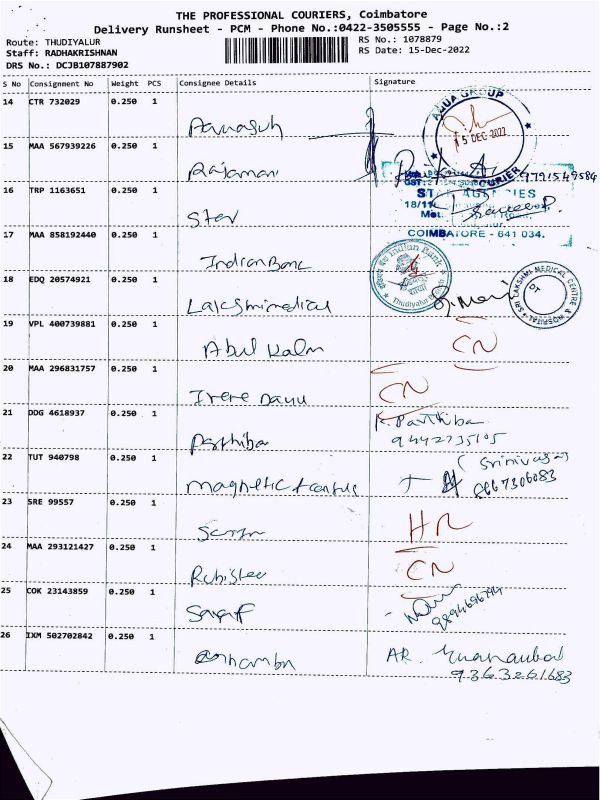 THE PROFESSIONAL COURIERS, Coimbatore
Delivery Runsheet - PCM - Phone No.:0422-3505555 - Page No.:2
Route: THUDIYALUR
RS No.: 1078879
Staff: RADHAKRISHNAN
RS Date: 15-Dec-2022
DRS No.: DCJB107887902
S No Consignment No Weight PCS Consignee Details Signature
14 CTR 732029 0.250 1
AQUA GROUP
15 DEC 2022
COURIER
15 MAA 567939226 0.250 1 Rajamani
9791549584
16 TRP 1163651 0.250 1 Star
18/11
COIMBATORE - 641 034.
17 MAA 858192440 0.250 1 Indian Bank
Indian Bank
Thudiyalur
18 EDQ 20574921 0.250 1 Lakshmimedical
R. Mani
SRI LAKSHMI MEDICAL CENTRE & HOSPITAL
19 VPL 400739881 0.250 1 Abul Kalm CN
20 MAA 296831757 0.250 1 Irene CN
21 DDG 4618937 0.250 1 Parthiba K. Parthiba
9442735105
22 TUT 940798 0.250 1 magnetic
8667306083
23 SRE 99557 0.250 1
24 MAA 293121427 0.250 1 CN
25 COK 23143859 0.250 1
9894696794
26 IXM 502702842 0.250 1 AR.
9363261683